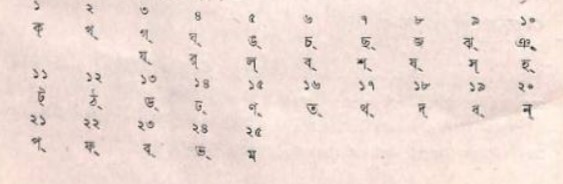 ১ ২ ৩ ৪ ৫ ৬ ৭ ৮ ৯ ১০
ক্ খ্ গ্ ঘ্ ঙ্ চ্ ছ্ জ্ ঝ্ ঞ্
য্ র্ ল্ ব্ শ্ ষ্ স্ হ্
১১ ১২ ১৩ ১৪ ১৫ ১৬ ১৭ ১৮ ১৯ ২০
ট্ ঠ্ ড্ ঢ্ ণ্ ত্ থ্ দ্ ধ্ ন্
২১ ২২ ২৩ ২৪ ২৫
প্ ফ্ ব্ ভ্ ম